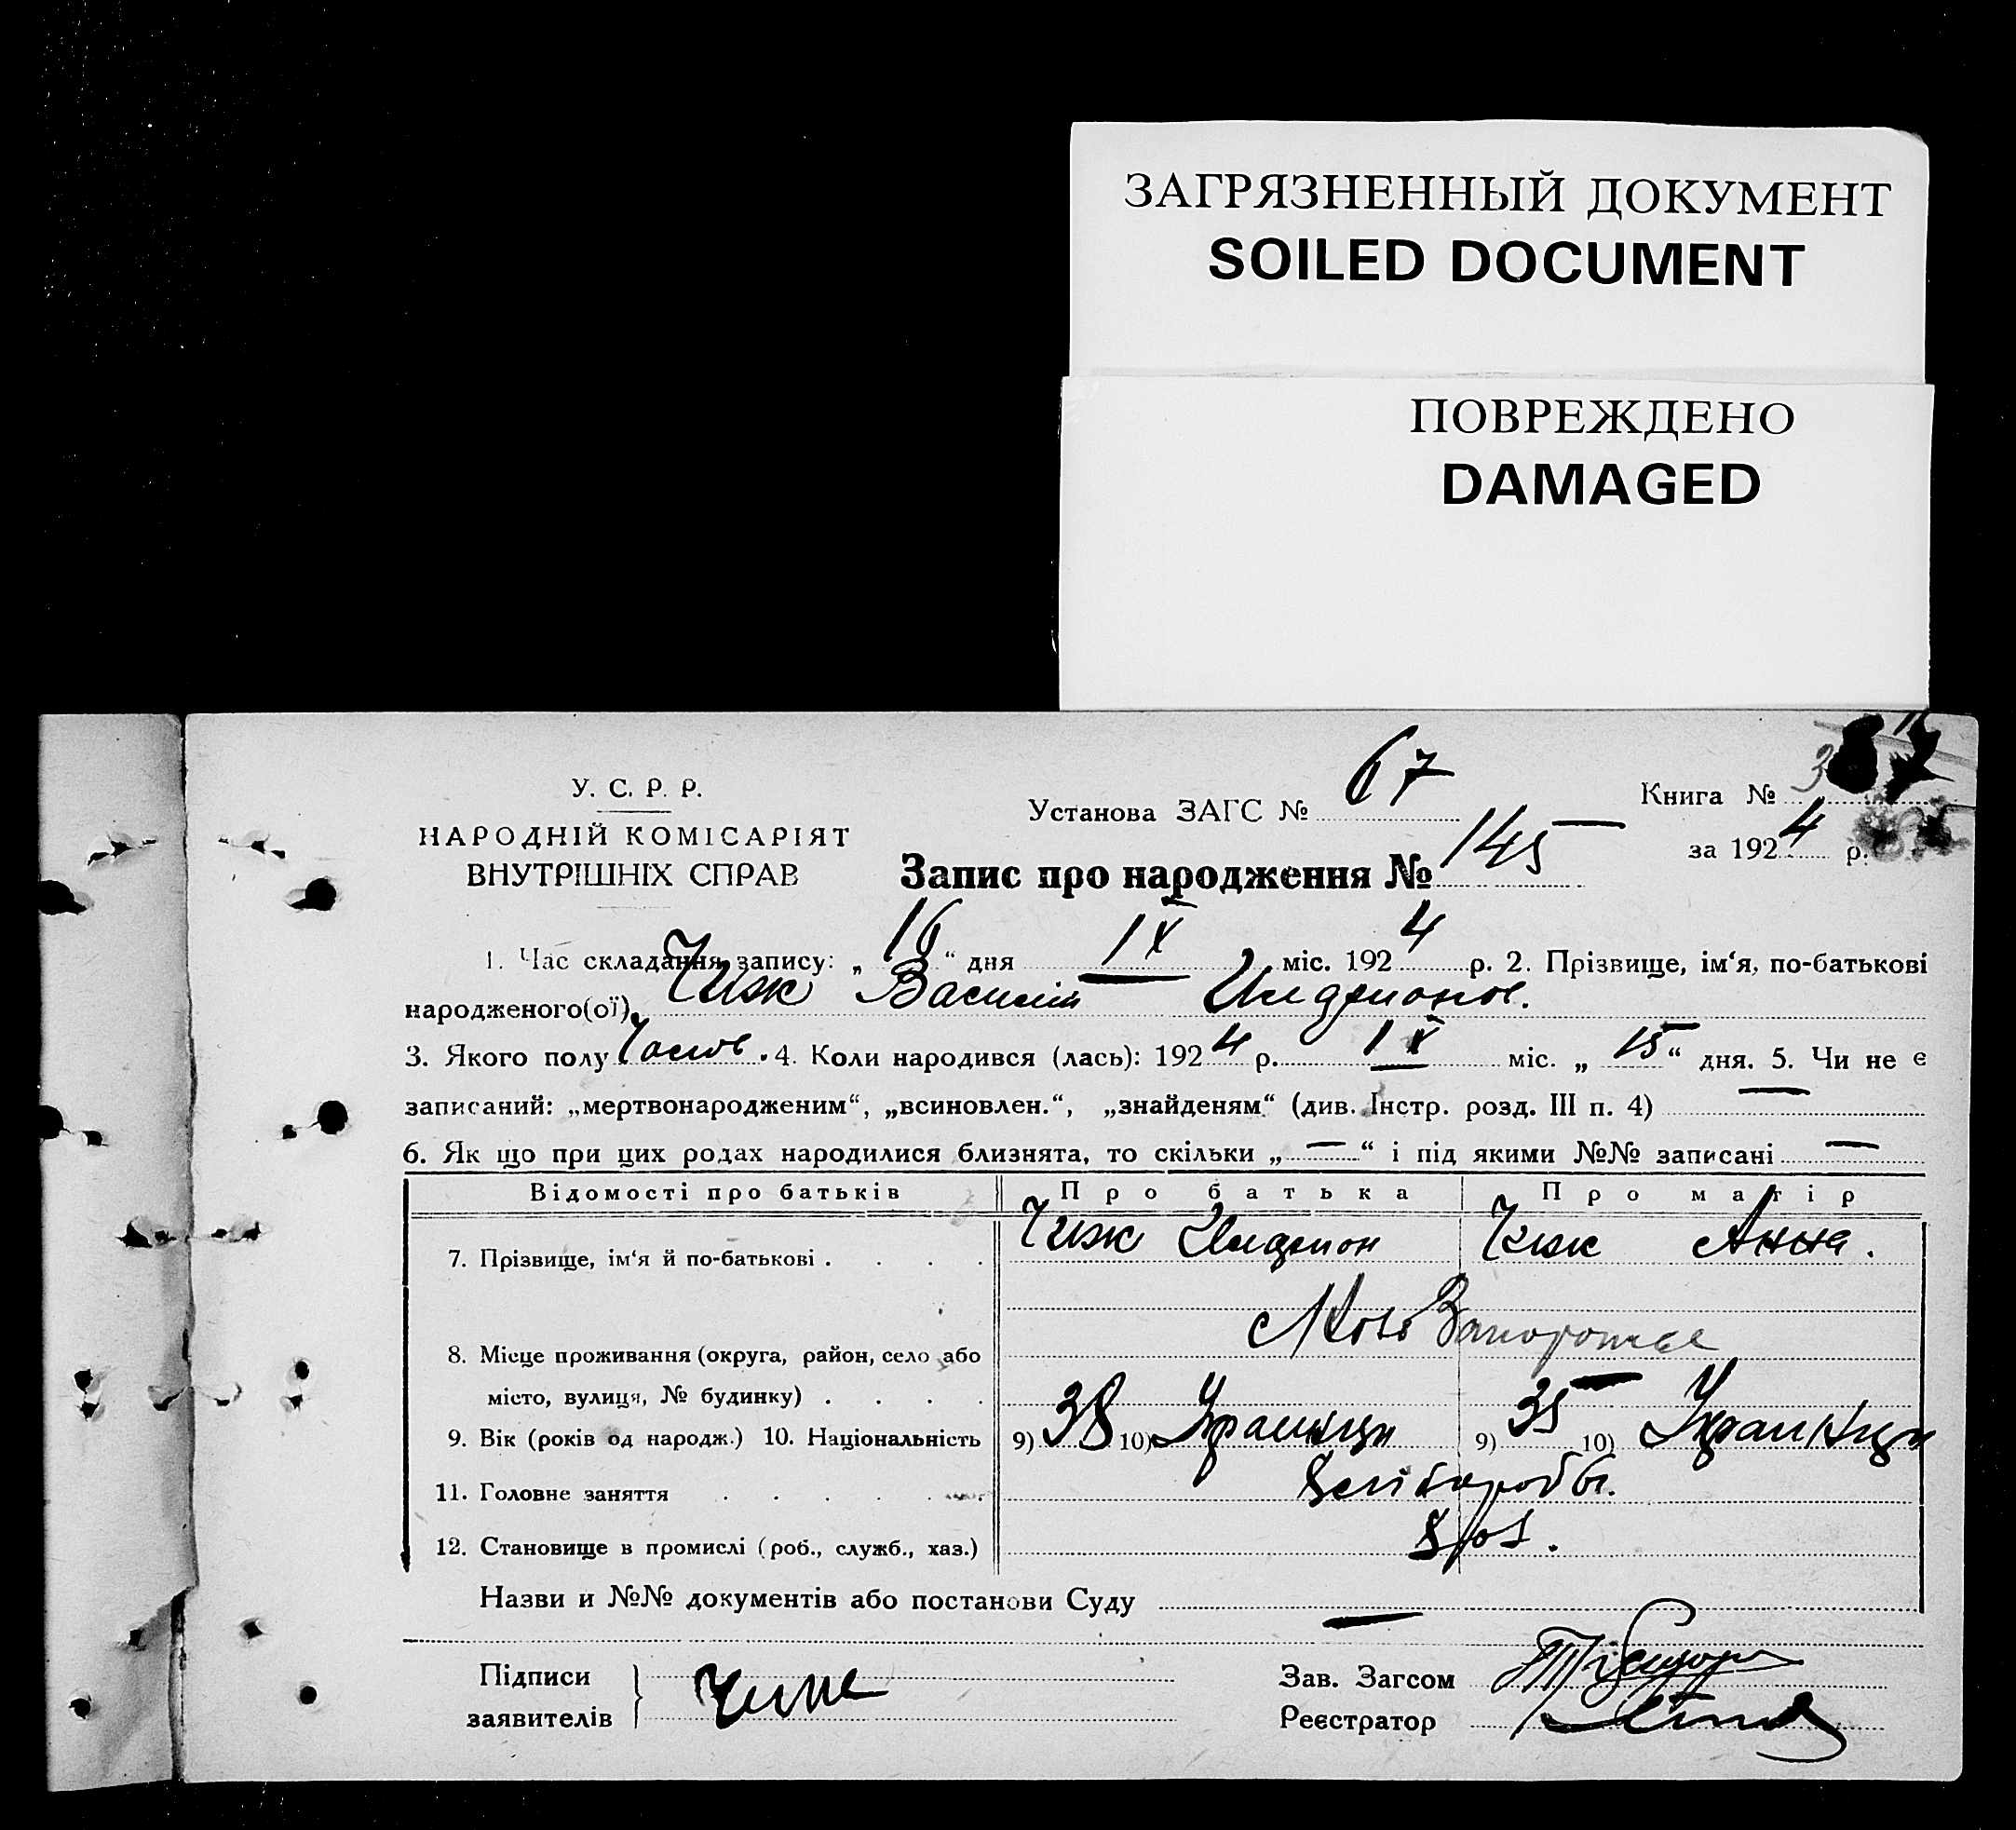 ЗАГРЯЗНЕННЫЙ ДОКУМЕНТ
SOILED DOCUMENT
ПОВРЕЖДЕНО
DAMAGED
У. С. Р. Р.
НАРОДНІЙ КОМІСАРІЯТ
ВНУТРІШНІХ СПРАВ
Установа ЗАГС № 67
Книга №
за 1924 р.
Запис про народження № 145
1. Час складання запису: „16“ дня IX міс. 1924 р. 2. Прізвище, ім‘я, по-батькові
народженого(ої) Чиж Василій
3. Якого полу 4. Коли народився (лась): 1924 р. IX міс. „15“ дня. 5. Чи не є
записаний: „мертвонародженим“, „всиновлен.“, „знайденям“ (див. Інстр. розд. III п. 4) —
6. Як що при цих родах народилися близнята, то скільки „—“ і під якими №№ записані —
Відомості про батьків Про батька Про матір
7. Прізвище, ім‘я й по-батькові . . . . Чиж Чиж Анна.
8. Місце проживання (округа, район, село або
місто, вулиця, № будинку) . . . .
9. Вік (років од народж.) 10. Національність 9) 38 10) 9) 35 10)
11. Головне заняття . . . . . .
12. Становище в промислі (роб., служб., хаз.)
Назви и №№ документів або постанови Суду —
Підписи
заявителів
Зав. Загсом
Реєстратор